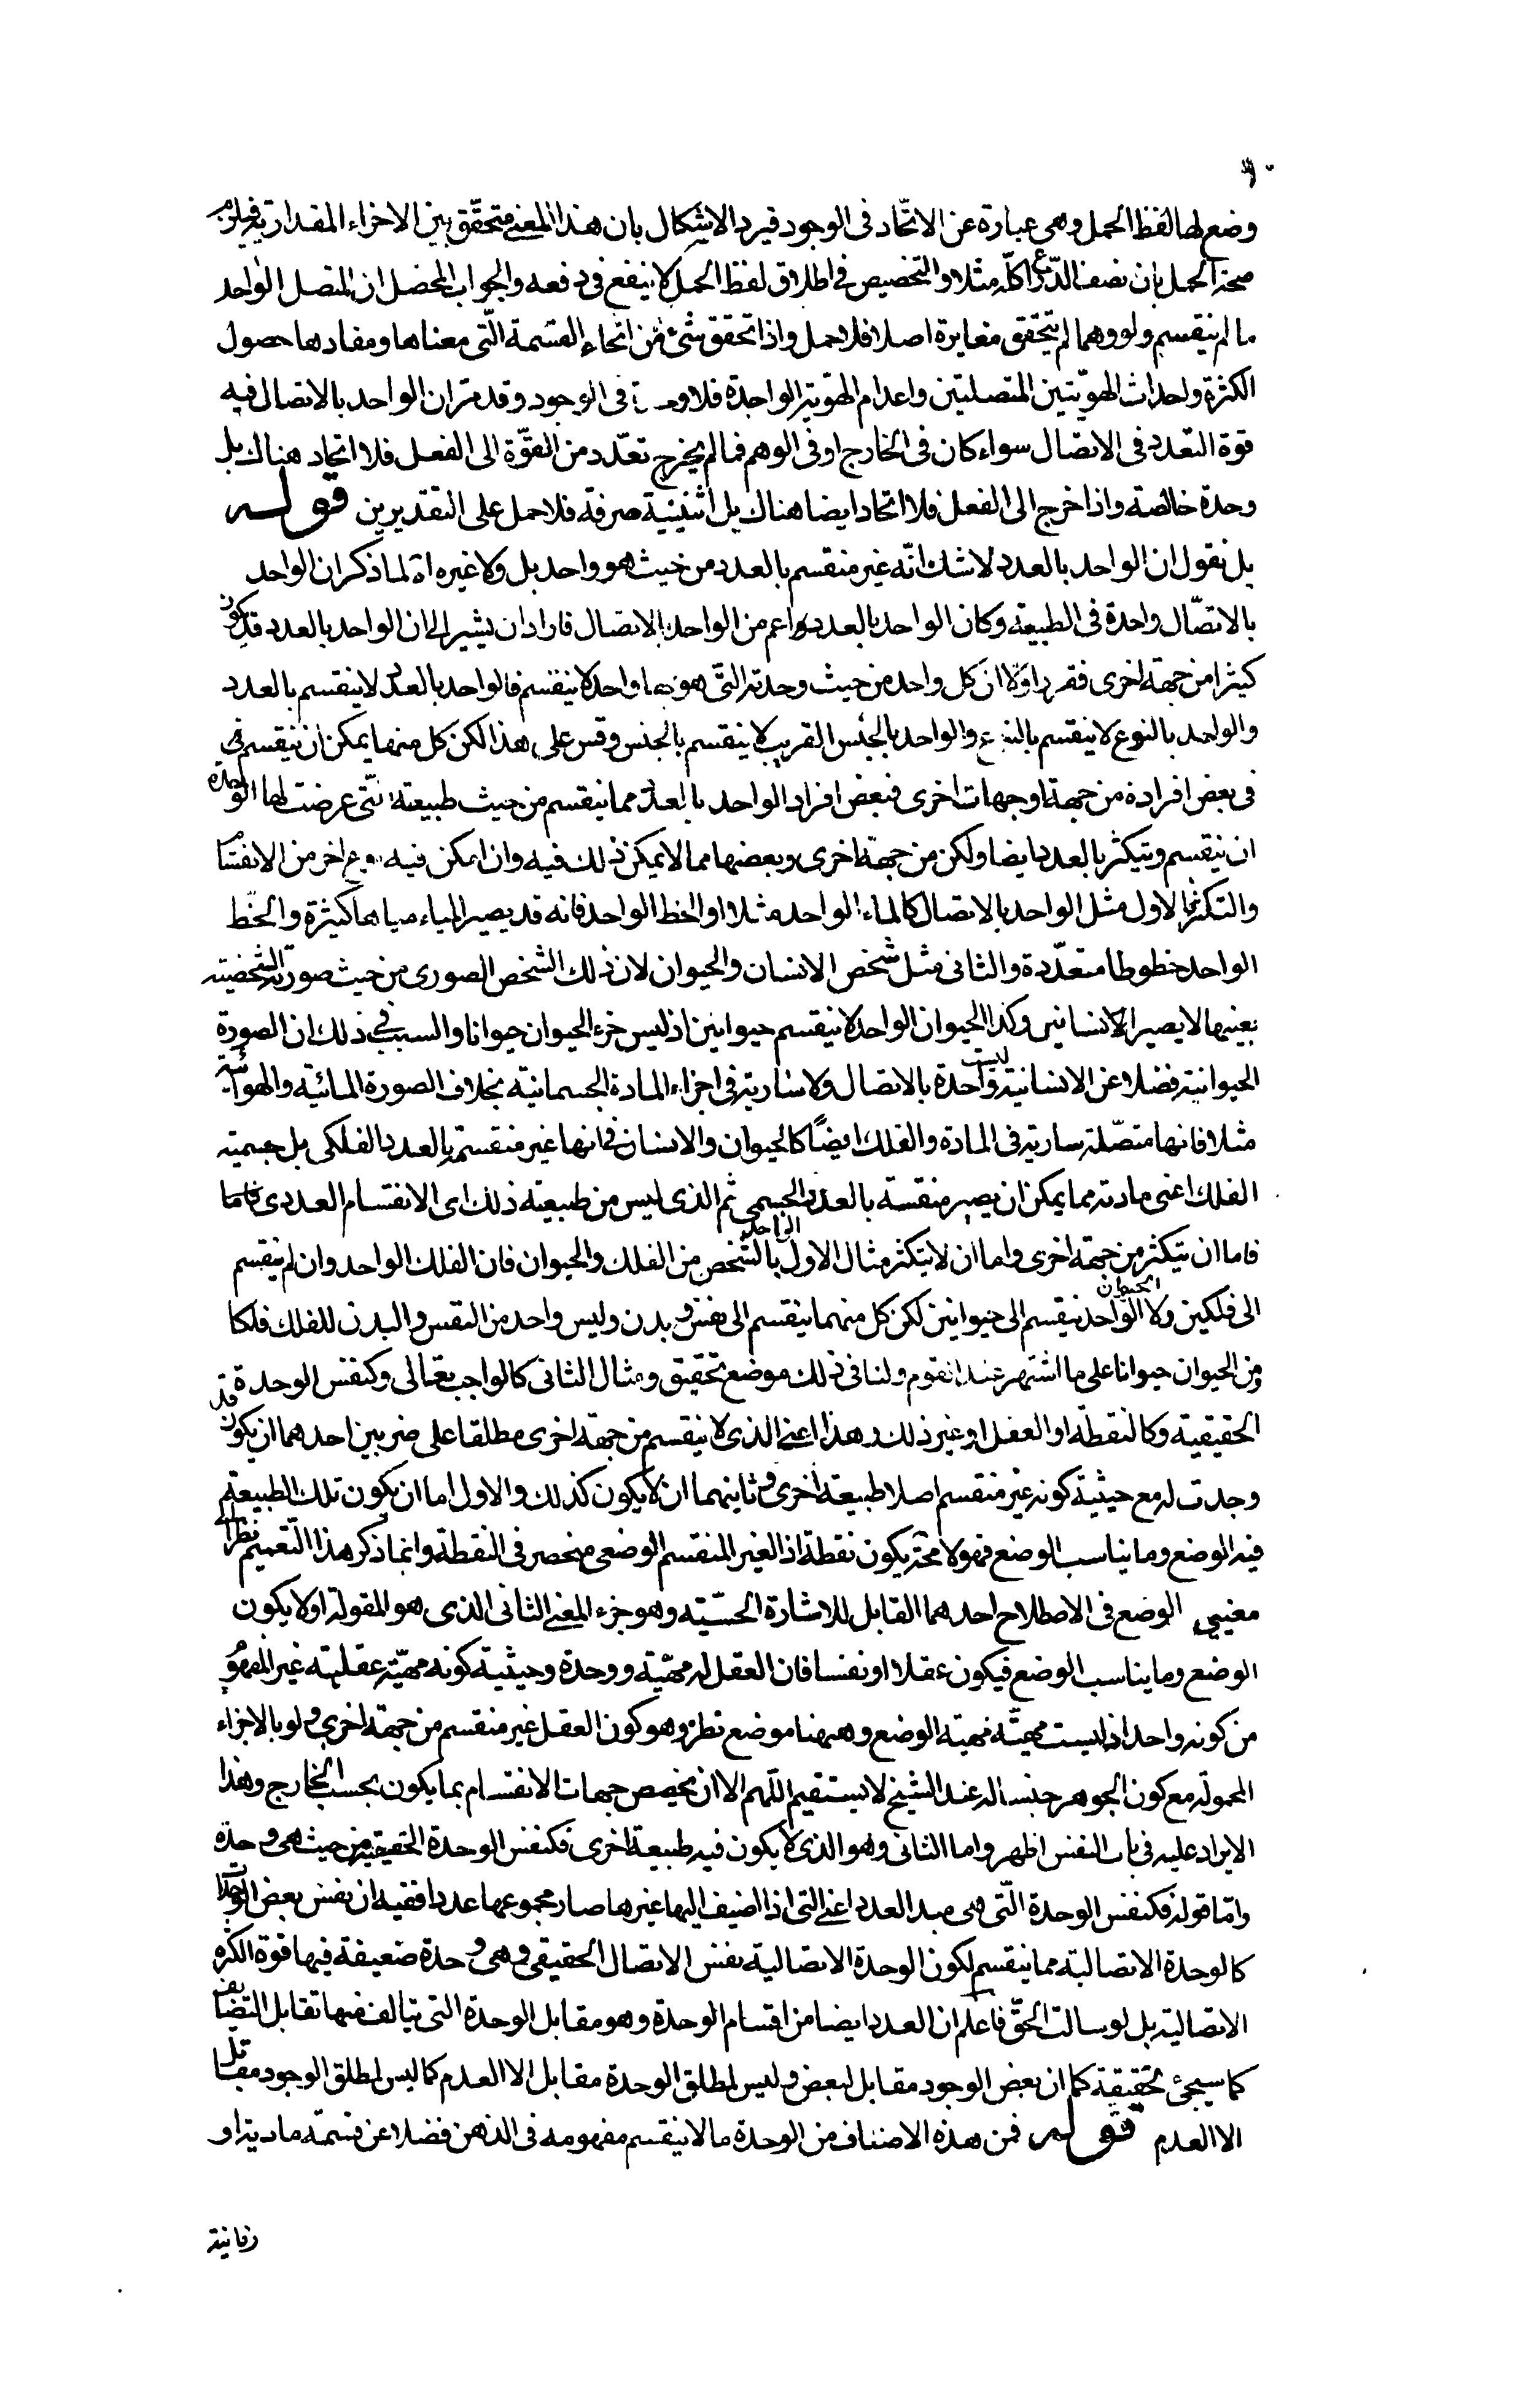 وضع لها لفظ الحمل وهى عبارة عن الاتّحاد فى الوجود فيرد الاشكال بان هذا المعنى متحقّق بين الاجزاء المقدارية فيلزم
صحة الحمل بان نصف الذراع كلّه مثلا والتخصيص فى اطلاق لفظ الحمل لا ينفع فى دفعه والجواب المحصل ان المتصل الواحد
ما لم ينقسم ولو وهما لم يتحقق مغايرة اصلا فلا حمل واذا تحقق شئ من انحاء القسمة الّتى معناها ومفادها حصول
الكثرة واحداث الهويّتين المتصلتين واعدام الهويّة الواحدة فلا وحدة فى الوجود وقد مرّ ان الواحد بالاتصال فيه
قوة التعدد فى الاتصال سواء كان فى الخارج او فى الوهم فما لم يخرج تعدّد من القوّة الى الفعل فلا اتحاد هناك بل
وحدة خالصة واذا خرج الى الفعل فلا اتحاد ايضا هناك بل اثنينية صرفة فلا حمل على التقديرين قوله
بل نقول ان الواحد بالعدد لا شك انّه غير منقسم بالعدد من حيث هو واحد بل ولا غيره اه لما ذكر ان الواحد
بالاتصّال واحدة فى الطبيعة وكان الواحد بالعدد اعم من الواحد بالاتصال فاراد ان يشير الى ان الواحد بالعدد قد يكون
كثيرا من جهة اخرى فقرر اوّلا ان كل واحد من حيث وحدته التى هو بها واحد لا ينقسم فالواحد بالعدد لا ينقسم بالعدد
والواحد بالنوع لا ينقسم بالنوع والواحد بالجنس القريب لا ينقسم بالجنس وقس على هذا لكن كل منها يمكن ان ينقسم فى
فى بعض افراده من جهة او جهات اخرى فبعض افراد الواحد بالعدد مما ينقسم من حيث طبيعته التى عرضت لها الوحدة
ان ينقسم ويتكثر بالعدد ايضا ولكن من جهة اخرى وبعضها مما لا يمكن ذلك فيه وان امكن فيه نوع اخر من الانقسام
والتكثر فالاول مثل الواحد بالاتصال كالماء الواحد مثلا او الخط الواحد فانه قد يصير المياء مياها كثيرة والخطّ
الواحد خطوطا متعدّدة والثانى مثل شخص الانسان والحيوان لان ذلك الشخص الصورى من حيث صورته الشخصية
بعينها لا يصير الانسانين وكذا الحيوان الواحد لا ينقسم حيوانين اذ ليس جزء الحيوان حيوانا والسبب فى ذلك ان الصورة
الحيوانية فضلا عن الانسانية ليست واحدة بالاتصال ولا سارية فى اجزاء المادة الجسمانية بخلاف الصورة المائية والهوائية
مثلا فانها متصّلة سارية فى المادة والفلك ايضًا كالحيوان والانسان فانها غير منقسمة بالعدد الفلكى بل جسمية
الفلك اعنى مادته مما يمكن ان يصير منقسمة بالعدد الجسمى ثم الذى ليس من طبيعته ذلك اى الانقسام العددى فاما
فاما ان يتكثر من جهة اخرى واما ان لا يتكثر مثال الاول الواحد بالشخص من الفلك والحيوان فان الفلك الواحد وان لم ينقسم
الى فلكين ولا الحيوان الواحد ينقسم الى حيوانين لكن كل منهما ينقسم الى نفس وبدن وليس واحد من النفس والبدن للفلك فلكا
ومن الحيوان حيوانا على ما اشتهر عند القوم ولنا فى ذلك موضع تحقيق ومثال الثانى كالواجب تعالى وكنفس الوحدة
الحقيقية وكالنقطة او العقل او غير ذلك وهذا اعنى الذى لا ينقسم من جهة اخرى مطلقا على ضربين احدهما ان يكون قد
وجدت له مع حيثية كونه غير منقسم اصلا طبيعة اخرى وثانيهما ان لا يكون كذلك والاول اما ان يكون تلك الطبيعة
فيه الوضع وما يناسب الوضع فهو لا محة يكون نقطة اذ الغير المنقسم الوضعى منحصر فى النقطة وانما ذكر هذا التّعميم نظرا الى
معنيى الوضع فى الاصطلاح احدهما القابل للاشارة الحسّيّة وهو جزء المعنى الثانى الذى هو المقولة او لا يكون
الوضع وما يناسب الوضع فيكون عقلا او نفسا فان العقل له مهيّة ووحدة وحيثية كونه مهيّة عقلية غير المفهوم
من كونه واحدا اذ ليست مهيّته مهية الوضع وههنا موضع نظر وهو كون العقل غير منقسم من جهة اخرى ولو بالاجزاء
المحمولة مع كون الجوهر جنسا له عند الشيخ لا يستقيم اللهم الا ان يخصص جهات الانقسام بما يكون بحسب الخارج وهذا
الايراد عليه فى باب النفس اظهر واما الثانى وهو الذى لا يكون فيه طبيعة اخرى فكنفس الوحدة الحقيقية من حيث هى وحدة
وامّا قوله فكنفس الوحدة الّتى هى مبدا العدد اعنى التى اذا اضيف اليها غيرها صار مجموعها عددا ففيه ان نفس بعض الوحدات
كالوحدة الاتصالية مما ينقسم لكون الوحدة الاتصالية نفس الاتصال الحقيقى وهى وحدة ضعيفة فيها قوة الكثرة
الاتصالية بل لو سالت الحقّ فاعلم ان العدد ايضا من اقسام الوحدة وهو مقابل الوحدة التى يتالف منها تقابل التضايف
كما سيجئ تحقيقة كما ان بعض الوجود مقابل لبعض وليس لمطلق الوحدة مقابل الا العدم كما ليس لمطلق الوجود مقابل
الا العدم قوله فمن هذه الاصناف من الوحدة ما لا ينقسم مفهومه فى الذهن فضلا عن قسمة مادية او
زمانية